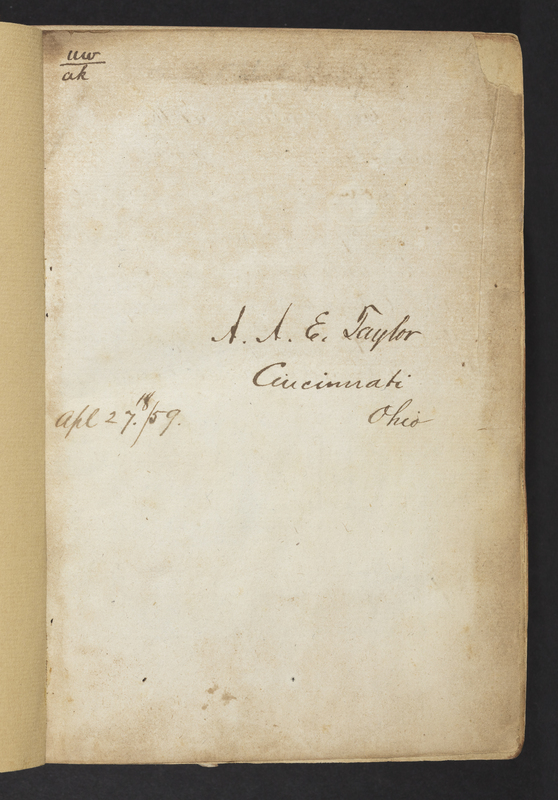 uw
ak
A. A. E. Taylor
Cincinnati
Ohio
Apl 27. 18/59.